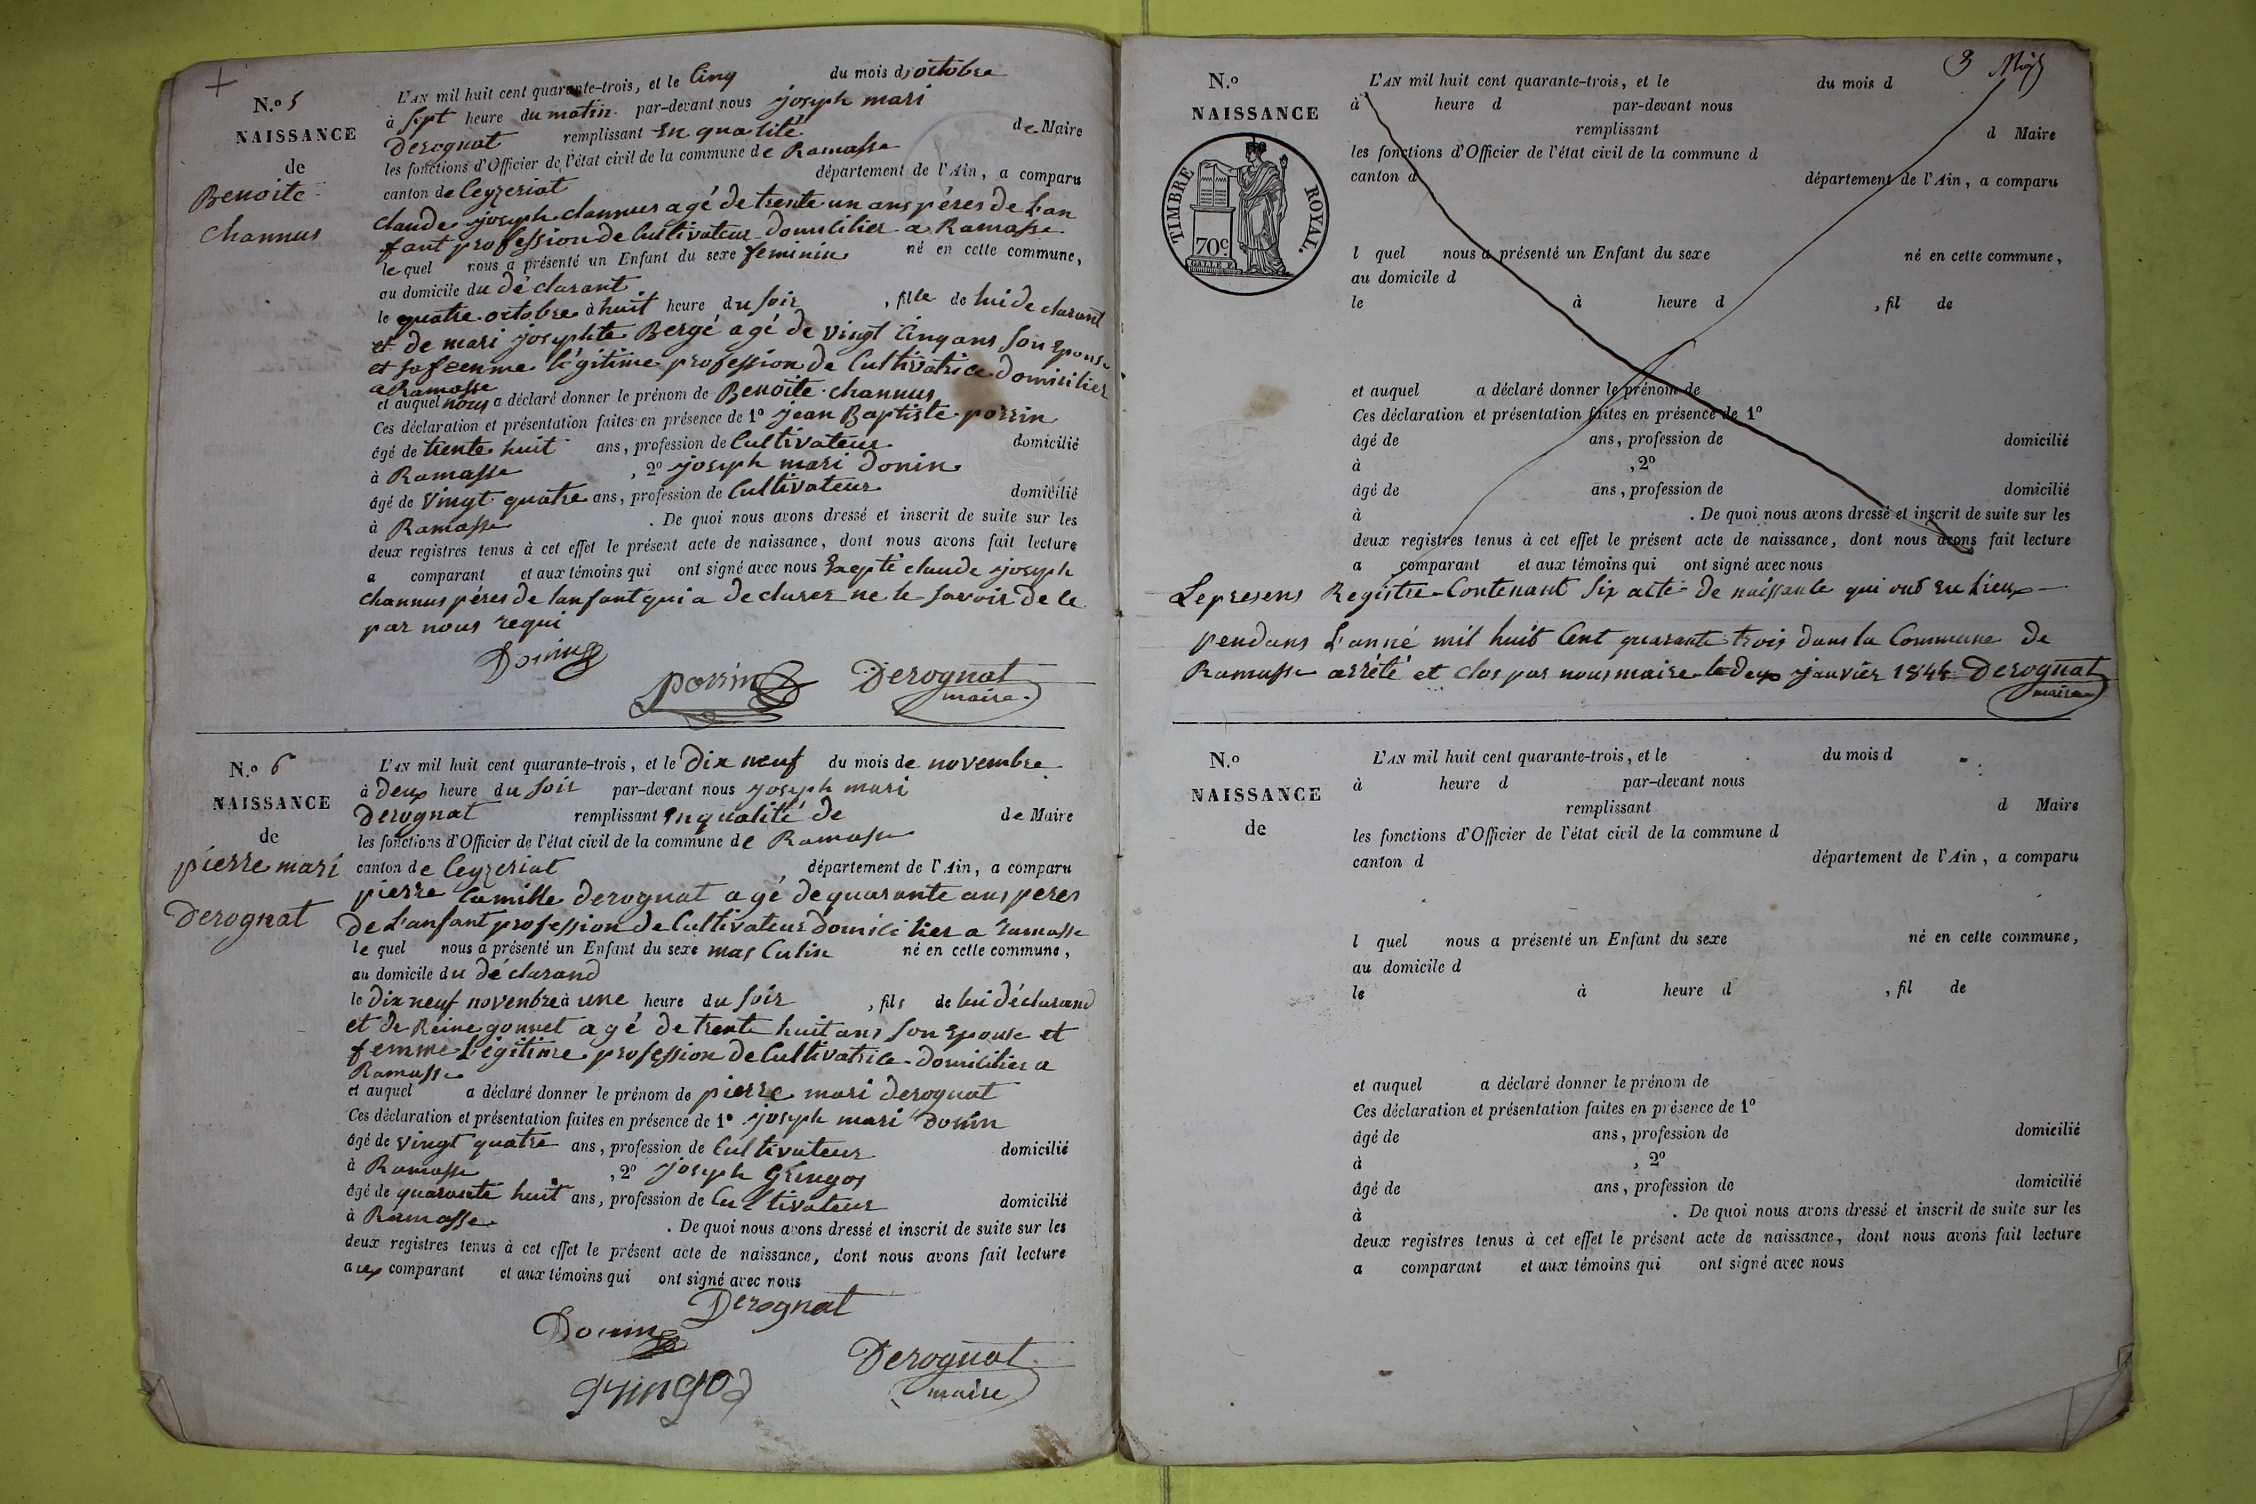 N.º 5
NAISSANCE
de
Benoite
channus
L'AN mil huit cent quarante-trois, et le Cinq du mois d'octobre
à sept heure du matin par-devant nous joseph mari
Derognat remplissant En qualité de Maire
les fonctions d'Officier de l'état civil de la commune de Ramasse
canton de Ceyzeriat département de l'Ain, a comparu
claude joseph channus agé de trente un ans péres de L'an
fant profession de Cultivateur Domicilier a Ramasse
le quel nous a présenté un Enfant du sexe feminin né en cette commune,
au domicile du déclarant
le quatre octobre à huit heure du soir , fille de lui declarant
et de mari josephte Bergé agé de vingt Cinq ans son Epouse
et sa femme légitime profession de Cultivatrice domicilier
a Ramasse
et auquel nous a déclaré donner le prénom de Benoite channus
Ces déclaration et présentation faites en présence de 1º jean Baptiste porrin
âgé de trente huit ans, profession de Cultivateur domicilié
à Ramasse , 2º joseph mari Donin
âgé de vingt quatre ans, profession de Cultivateur domicilié
à Ramasse . De quoi nous avons dressé et inscrit de suite sur les
deux registres tenus à cet effet le présent acte de naissance, dont nous avons fait lecture
a comparant et aux témoins qui ont signé avec nous Exepté claude joseph
channus péres de lanfant qui a declarer ne le savoir de ce
par nous requi
Donin
porrin Derognat
maire
N.º 6
NAISSANCE
de
pierre mari
Derognat
L'AN mil huit cent quarante-trois, et le Dix neuf du mois de novembre
à Deux heure du soir par-devant nous joseph mari
Derognat remplissant En qualité de de Maire
les fonctions d'Officier de l'état civil de la commune de Ramasse
canton de Ceyzeriat département de l'Ain, a comparu
pierre Camille derognat agé de quarante ans peres
De L'anfant profession de Cultivateur domicilier a ramasse
le quel nous a présenté un Enfant du sexe masculin né en cette commune,
au domicile du déclarand
le dix neuf novembre à une heure du soir , fils de lui déclarand
et de Reine gonnet agé de trente huit ans son Epouse et
femme Légitime profession de Cultivatrice domicilier a
Ramasse
et auquel a déclaré donner le prénom de pierre mari derognat
Ces déclaration et présentation faites en présence de 1º joseph mari Donin
âgé de vingt quatre ans, profession de Cultivateur domicilié
à Ramasse , 2º joseph Gringos
âgé de quarante huit ans, profession de Cultivateur domicilié
à Ramasse . De quoi nous avons dressé et inscrit de suite sur les
deux registres tenus à cet effet le présent acte de naissance, dont nous avons fait lecture
aux comparant et aux témoins qui ont signé avec nous
Derognat
Donin
Derognat
maire
gringoz
3
N.º
NAISSANCE
TIMBRE ROYAL.
70 c
GALLE F.
L'AN mil huit cent quarante-trois, et le du mois d
à heure d par-devant nous
remplissant d Maire
les fonctions d'Officier de l'état civil de la commune d
canton d département de l'Ain, a comparu
l quel nous a présenté un Enfant du sexe né en cette commune,
au domicile d
le à heure d , fil de
et auquel a déclaré donner le prénom de
Ces déclaration et présentation faites en présence de 1º
âgé de ans, profession de domicilié
à , 2º
âgé de ans, profession de domicilié
à . De quoi nous avons dressé et inscrit de suite sur les
deux registres tenus à cet effet le présent acte de naissance, dont nous avons fait lecture
a comparant et aux témoins qui ont signé avec nous
Le presens Registre Contenant Six acte de naissance qui ont eu Lieux
pendans L'anné mil huit Cent quarante trois dans la Commune de
Ramasse arrété et clos par nous maire le deux janvier 1844 Derognat
maire
N.º
NAISSANCE
de
L'AN mil huit cent quarante-trois, et le du mois d
à heure d par-devant nous
remplissant d Maire
les fonctions d'Officier de l'état civil de la commune d
canton d département de l'Ain, a comparu
l quel nous a présenté un Enfant du sexe né en cette commune,
au domicile d
le à heure d , fil de
et auquel a déclaré donner le prénom de
Ces déclaration et présentation faites en présence de 1º
âgé de ans, profession de domicilié
à , 2º
âgé de ans, profession de domicilié
à . De quoi nous avons dressé et inscrit de suite sur les
deux registres tenus à cet effet le présent acte de naissance, dont nous avons fait lecture
a comparant et aux témoins qui ont signé avec nous